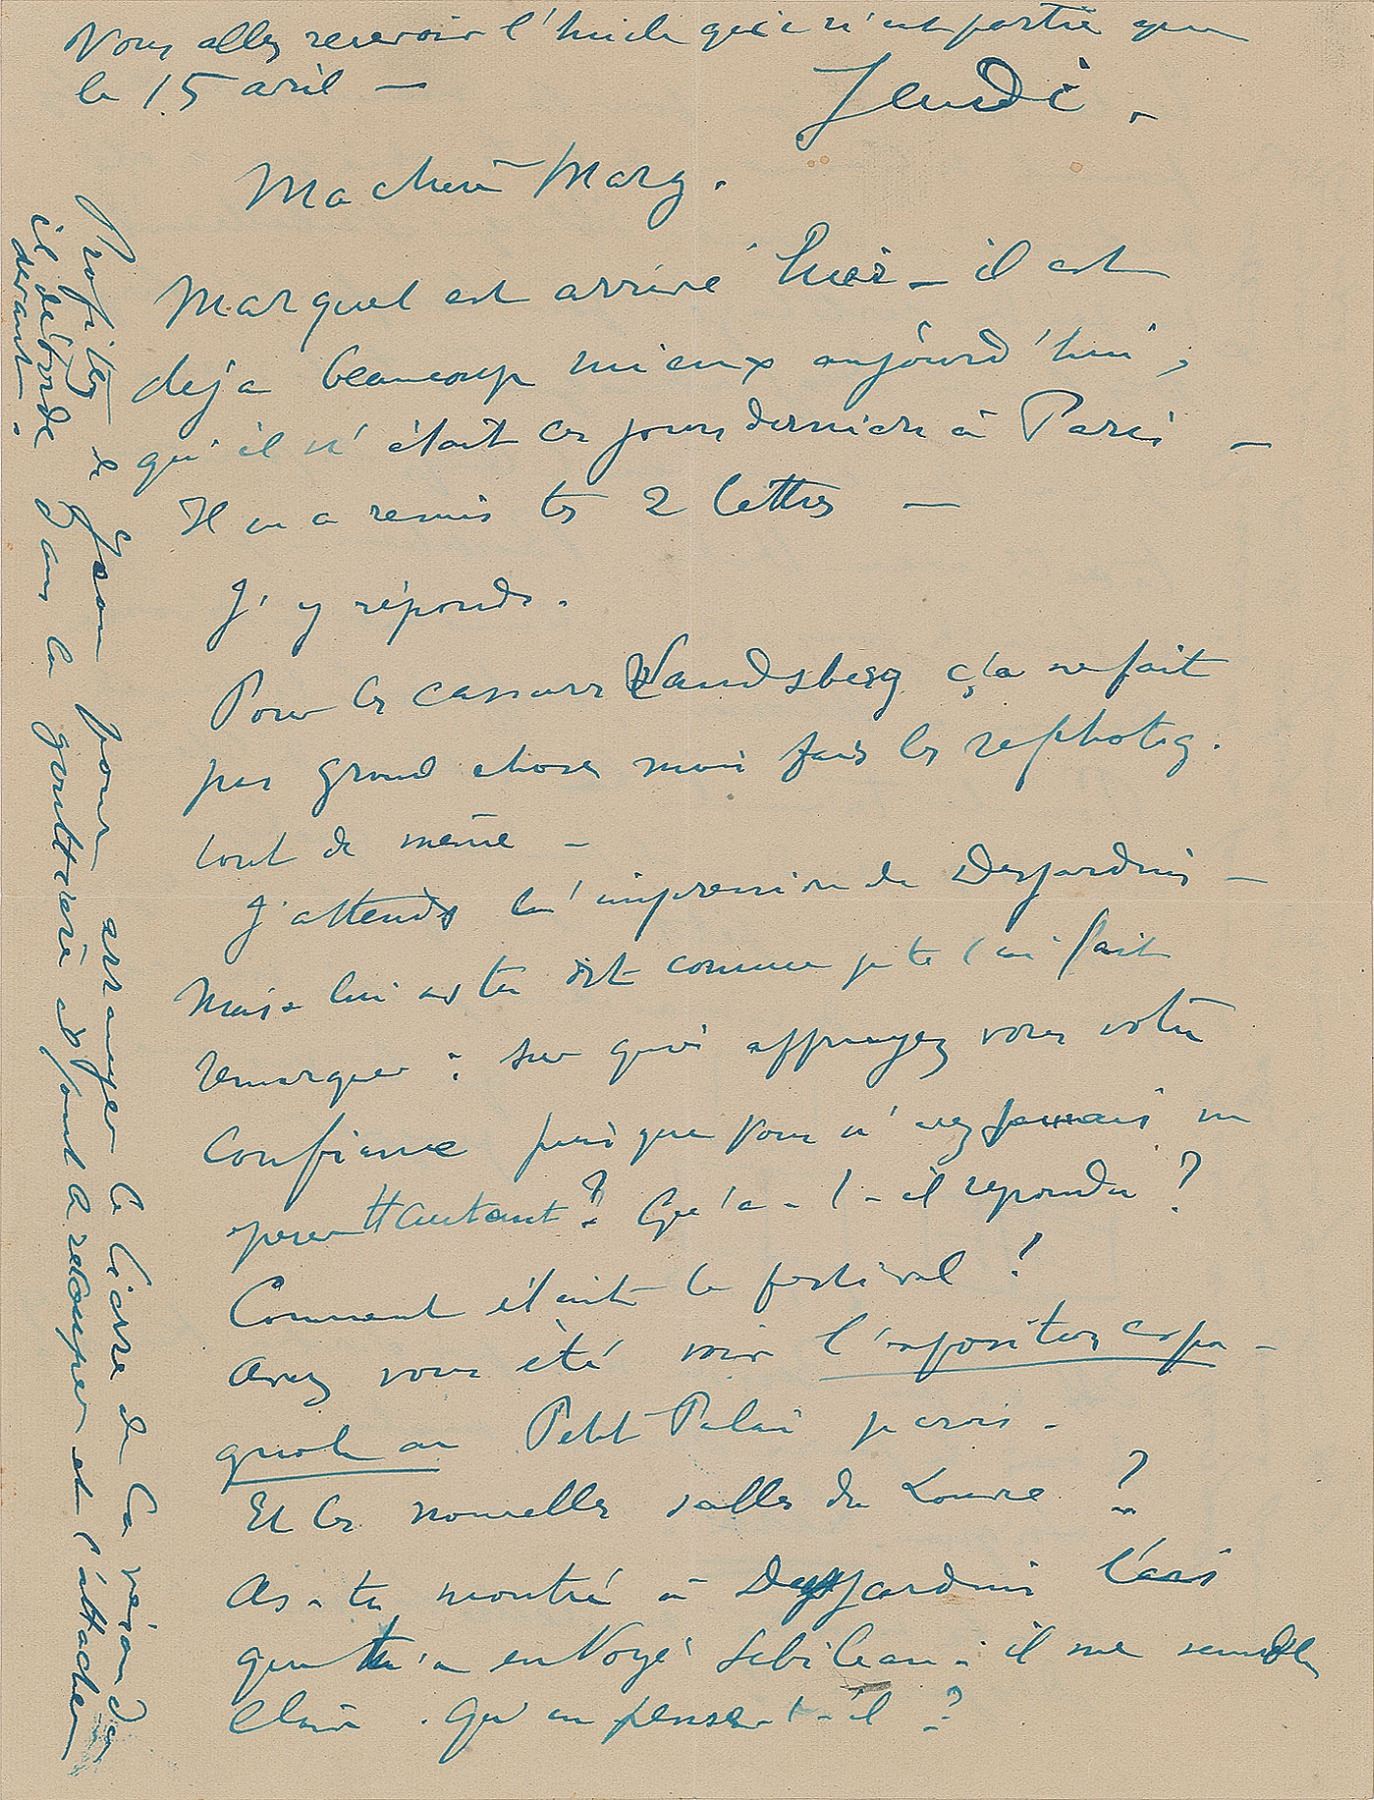 Vous allez recevoir l'huile qui n'est partie que
le 15 avril —
Jeudi.
Ma chère Marg.
Marquet est arrivé hier — il est
déja beaucoup mieux aujourd'hui,
qu'il n'était ces jours derniers à Paris —
Il m'a remis tes 2 lettres —
J'y réponds.
Pour les Landsberg ça ne fait
pas grand chose mais fais les rephotog.
tout de même —
J'attends l'impression de Desjardins —
Mais lui as tu dit comme je te l'ai fait
remarquer : sur quoi appuyez vous votre
confiance puisque vous n'avez jamais vu
Qu'a-t-il répondu ?
Comment était le festival ?
Avez vous été voir l'exposition espa-
gnole au Petit Palais je crois.
Et les nouvelles salles du Louvre ?
As-tu montré à Desjardins l'avis
que t'a envoyé Sebileau : il me semble
clair. Qu'en pense-t-il ?
Profitez de Jean pour arranger le lierre de la véranda
il déborde dans la gouttière il faut le recouper et l'attacher
devant.